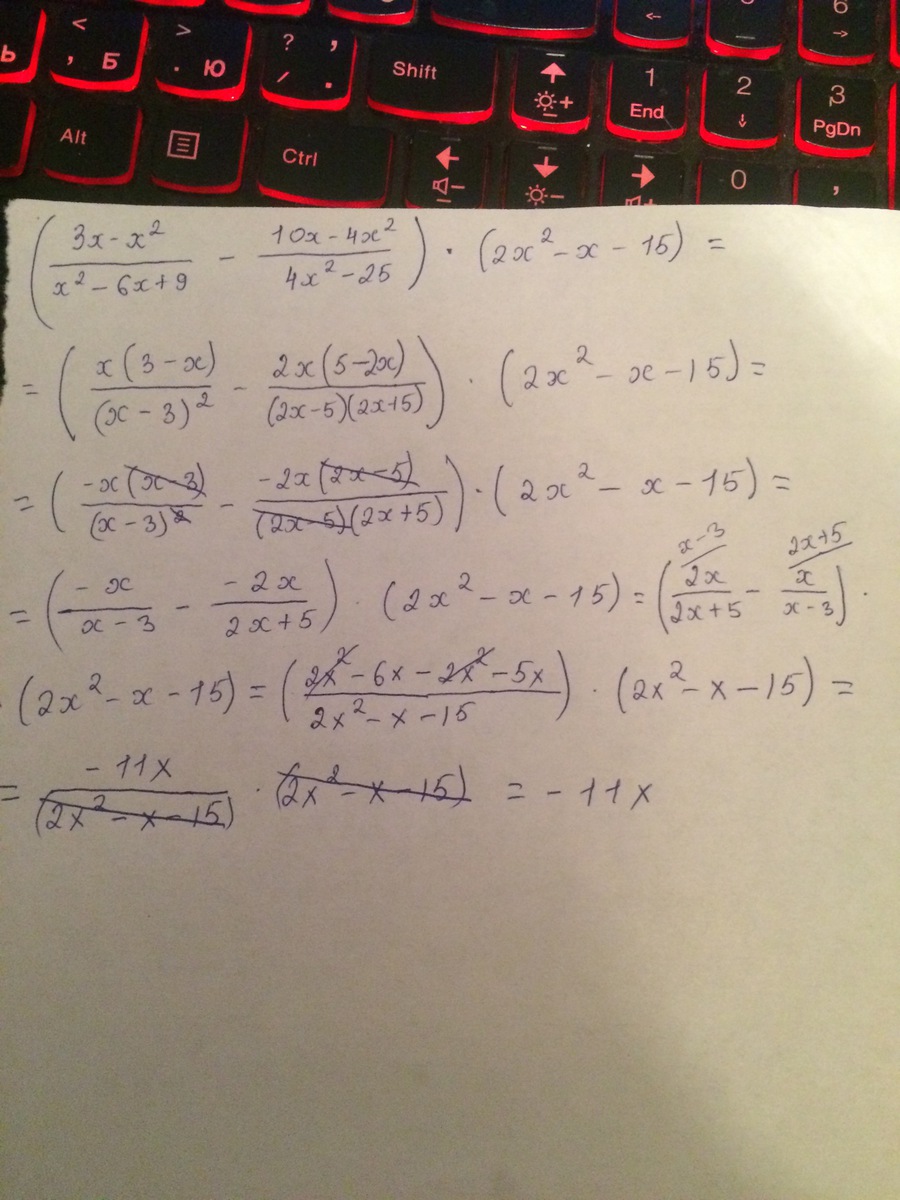 6
< , Б
> . Ю
? , / .
Shift
1 End
2
3 PgDn
Alt
Ctrl
0
,
( (3x - x²)/(x² - 6x + 9) - (10x - 4x²)/(4x² - 25) ) · (2x² - x - 15) =
= ( x(3 - x)/(x - 3)² - 2x(5 - 2x)/(2x - 5)(2x + 5) ) · (2x² - x - 15) =
= ( -x(x - 3)/(x - 3)² - -2x(2x - 5)/(2x - 5)(2x + 5) ) · (2x² - x - 15) =
= ( -x/(x - 3) - -2x/(2x + 5) ) · (2x² - x - 15) = ( x-3/ 2x/(2x + 5) - 2x+5/ x/(x - 3) ) ·
· (2x² - x - 15) = ( (2x² - 6x - 2x² - 5x)/(2x² - x - 15) ) · (2x² - x - 15) =
= -11x/(2x² - x - 15) · (2x² - x - 15) = -11x